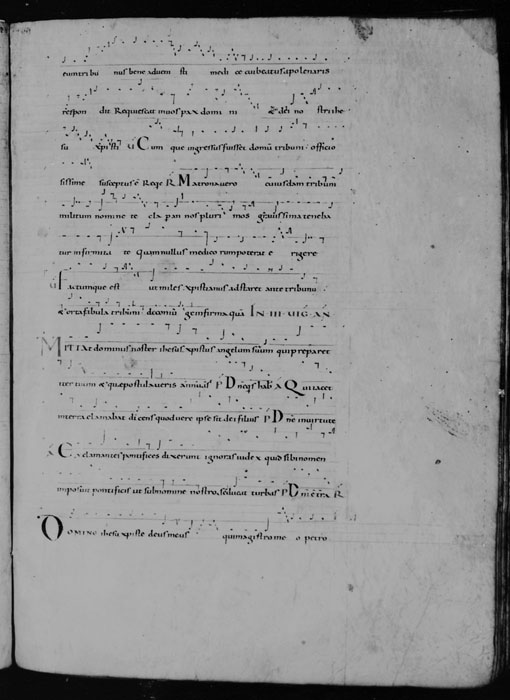 eum tribu nus bene aduem sti medi ce cui beatus apolenaris
respon dit Requiescat in uos pax domi ni & dei no stri ihe
su xpisti Cum que ingressus fuisset domū tribuni officio
sissime susceptus ē Rege R Matrona uero cuiusdam tribuni
militum nomine te cla pan nos pluri mos grauissima teneba
tur infirmita te Quam nullus medico rum poterat e rigere
Factumque est ut miles xpistianus adstaret ante tribunū
IN III UIG AN
Mittat dominus noster ihesus xpistus angelum suum qui preparet
iter tuum & quę postulaueris annuas P Dneqs hab A Qui tacet
interra clamabat dicens quod uere ipse sit dei filius P Dne in uirtute
A Exclamantes pontifices dixerunt ignoras iudex quid sibi nomen
imposuit pontificis ut sub nomine nostro seducat turbas P Dni ē tra R
Domino ihesu xpiste deus meus qui magistro me o petro